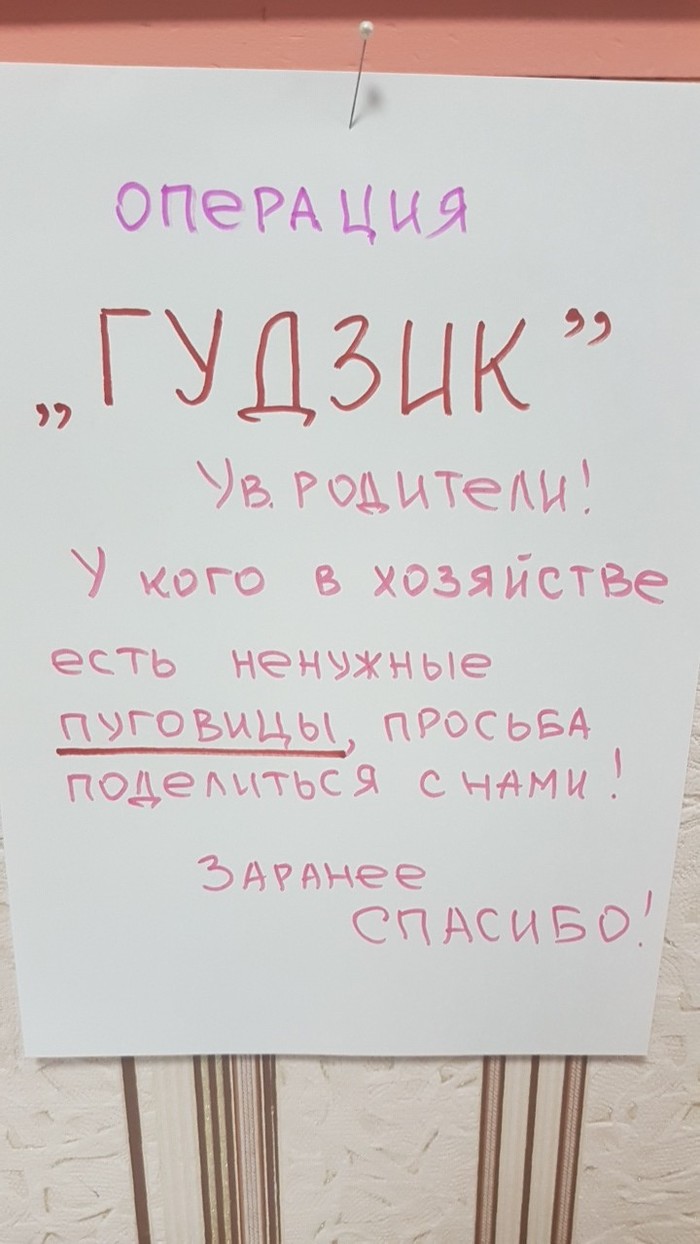 ОПеРАЦИЯ
„ГУДЗИК”
Ув. родители!
У кого в хозяйстве
есть ненужные
пуговицы, просьба
поделиться с нами!
Заранее
спасибо!